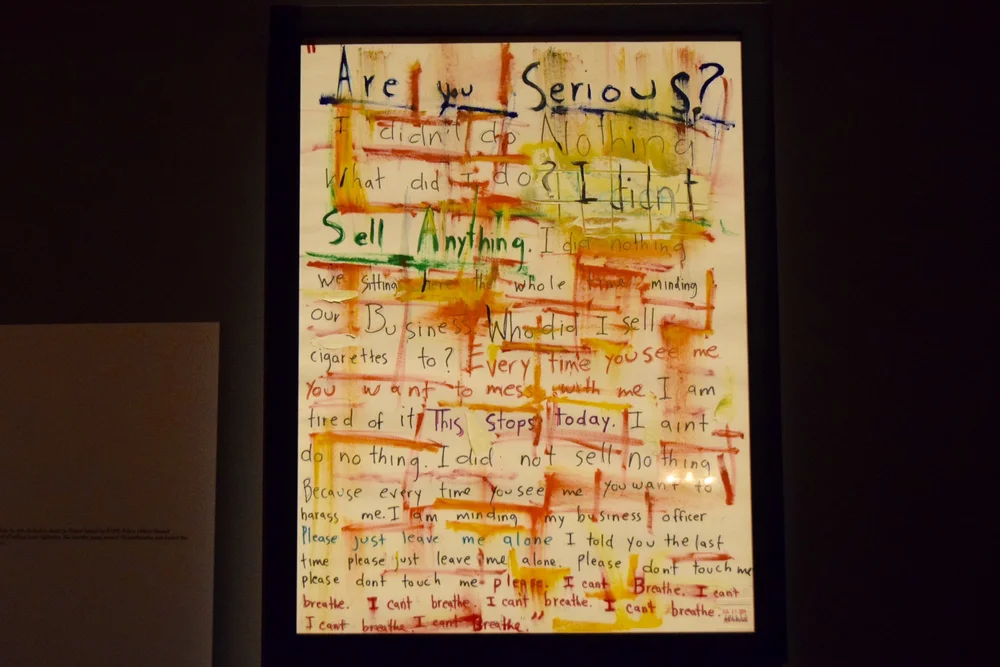 "Are you Serious?
I didn't do Nothing
What did I do? I didn't
Sell Anything. I did nothing
we sitting here the whole time minding
our Business Who did I sell
cigarettes to? Every time you see me
you want to mess with me. I am
tired of it. This stops today. I aint
do nothing. I did not sell nothing
Because every time you see me you want to
harass me. I am minding my business officer
Please just leave me alone I told you the last
time please just leave me alone. Please dont touch me
please dont touch me please. I cant Breathe. I cant
breathe. I cant breathe. I cant breathe. I cant breathe.
I cant breathe. I cant Breathe."